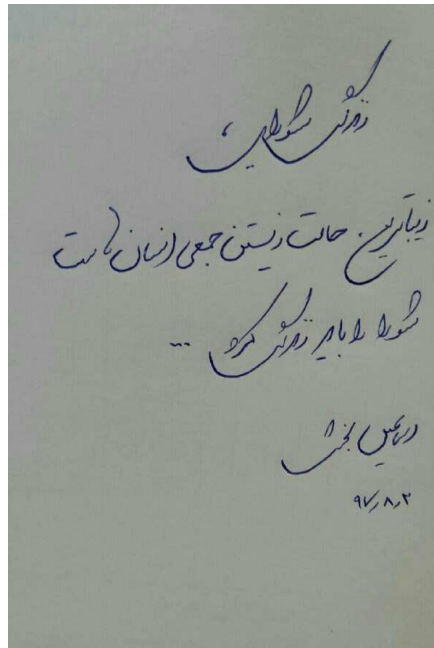 زندگی شورایی،
زیباترین حالت زیستن جمعی انسان هاست
شورا را باید زندگی کرد ...
اسماعیل بخشی
۹۷/۸/۳